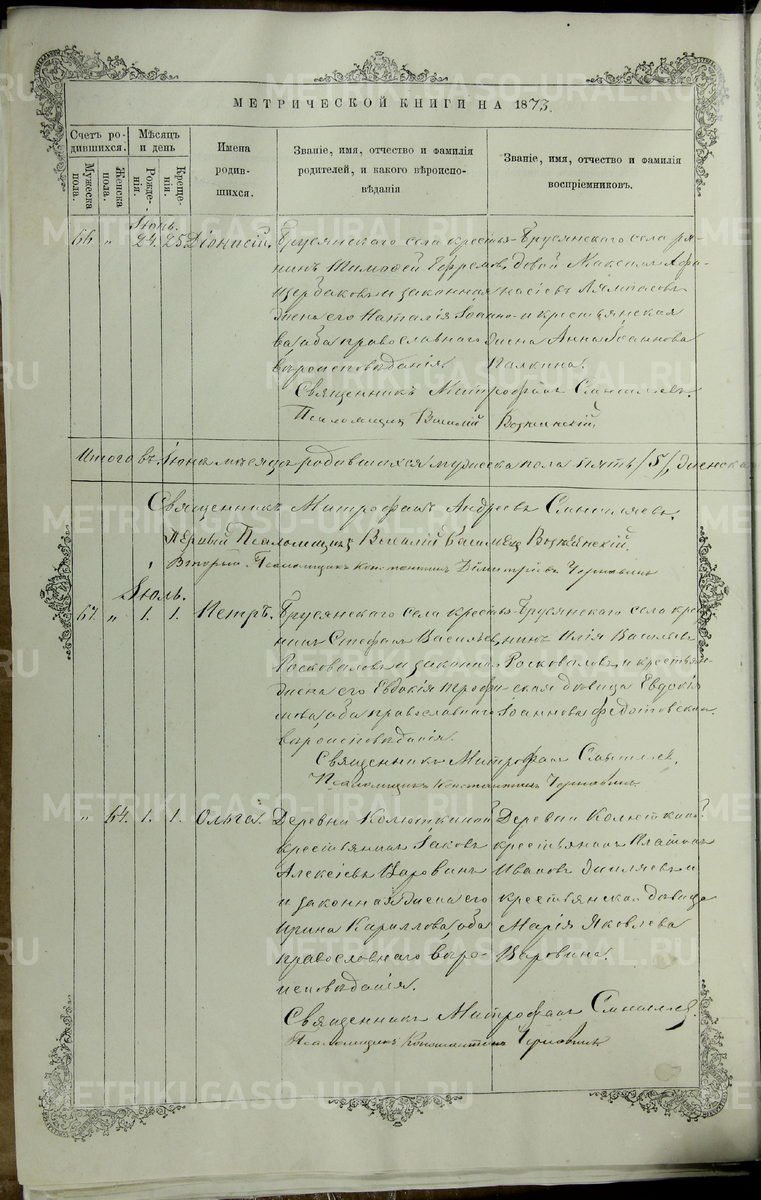 МЕТРИЧЕСКОЙ КНИГИ НА 1873.
Счетъ родившихся.
Мужеска пола.
Женска пола.
Мѣсяцъ и день
Рожденія.
Крещенія.
Имена родившихся.
Званіе, имя, отчество и фамилія родителей, и какого вѣроисповѣданія
Званіе, имя, отчество и фамилія воспріемниковъ.
Іюнь.
66 " 24. 25. Діонисій.
Брусянскаго села крестья-
нинъ Тимофей Ефремовъ
Щербаковъ и законная
жена его Наталія Іоанно-
ва оба православнаго
вѣроисповѣданія.
Брусянскаго села ря-
довой Максимъ
и крестьянская
жена Анна Іоаннова
Палкина.
Священникъ Митрофанъ Смышляевъ.
Псаломщикъ Василій
Итого въ Іюнѣ мѣсяцѣ родившихся мужеска пола пять /5/, женска
Священникъ Митрофанъ Андреевъ Смышляевъ.
Первый Псаломщикъ Василій Васильевъ
Второй Псаломщикъ Константинъ Димитріевъ
Іюль.
67. " 1. 1. Петръ.
Брусянскаго села крестья-
нинъ Стефанъ Васильевъ
Росковаловъ и законная
жена его Евдокія Трофи-
мова оба православнаго
вѣроисповѣданія.
Брусянскаго села кресть-
нинъ Илія Васильевъ
Росковаловъ и крестьян-
ская дѣвица Евдокія
Іоаннова Федотовская.
Священникъ Митрофанъ Смышляевъ.
Псаломщикъ Константинъ
" 64. 1. 1. Ольга.
Деревни Колюткиной
крестьянинъ Іаковъ
Алексіевъ Царовинъ
и законная жена его
Ирина Кириллова оба
православнаго вѣро-
исповѣданія.
Деревни Колюткиной
крестьянинъ Платонъ
Ивановъ и
крестьянская дѣвица
Марія Яковлева
Царовина.
Священникъ Митрофанъ Смышляевъ.
Псаломщикъ Константинъ
METRIKI.GASO-URAL.RU